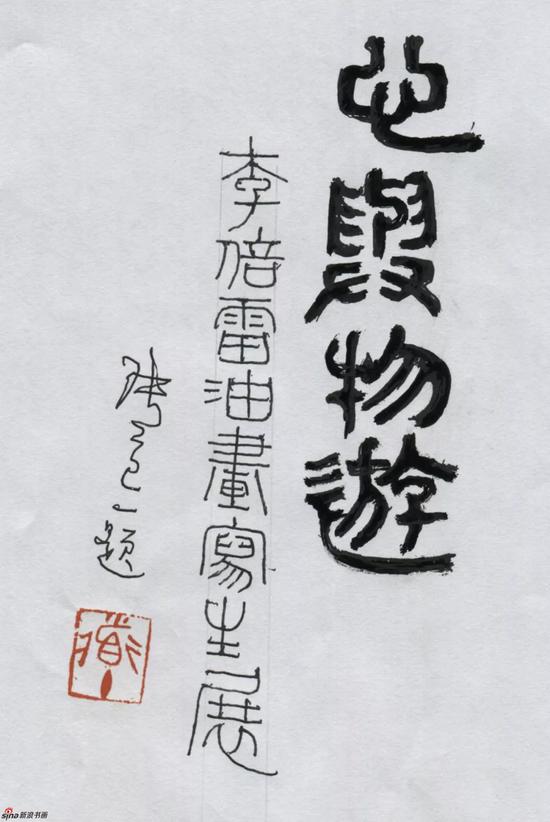 心與物遊
李倍雷油畫寫生展
张道一题
sina新浪书画